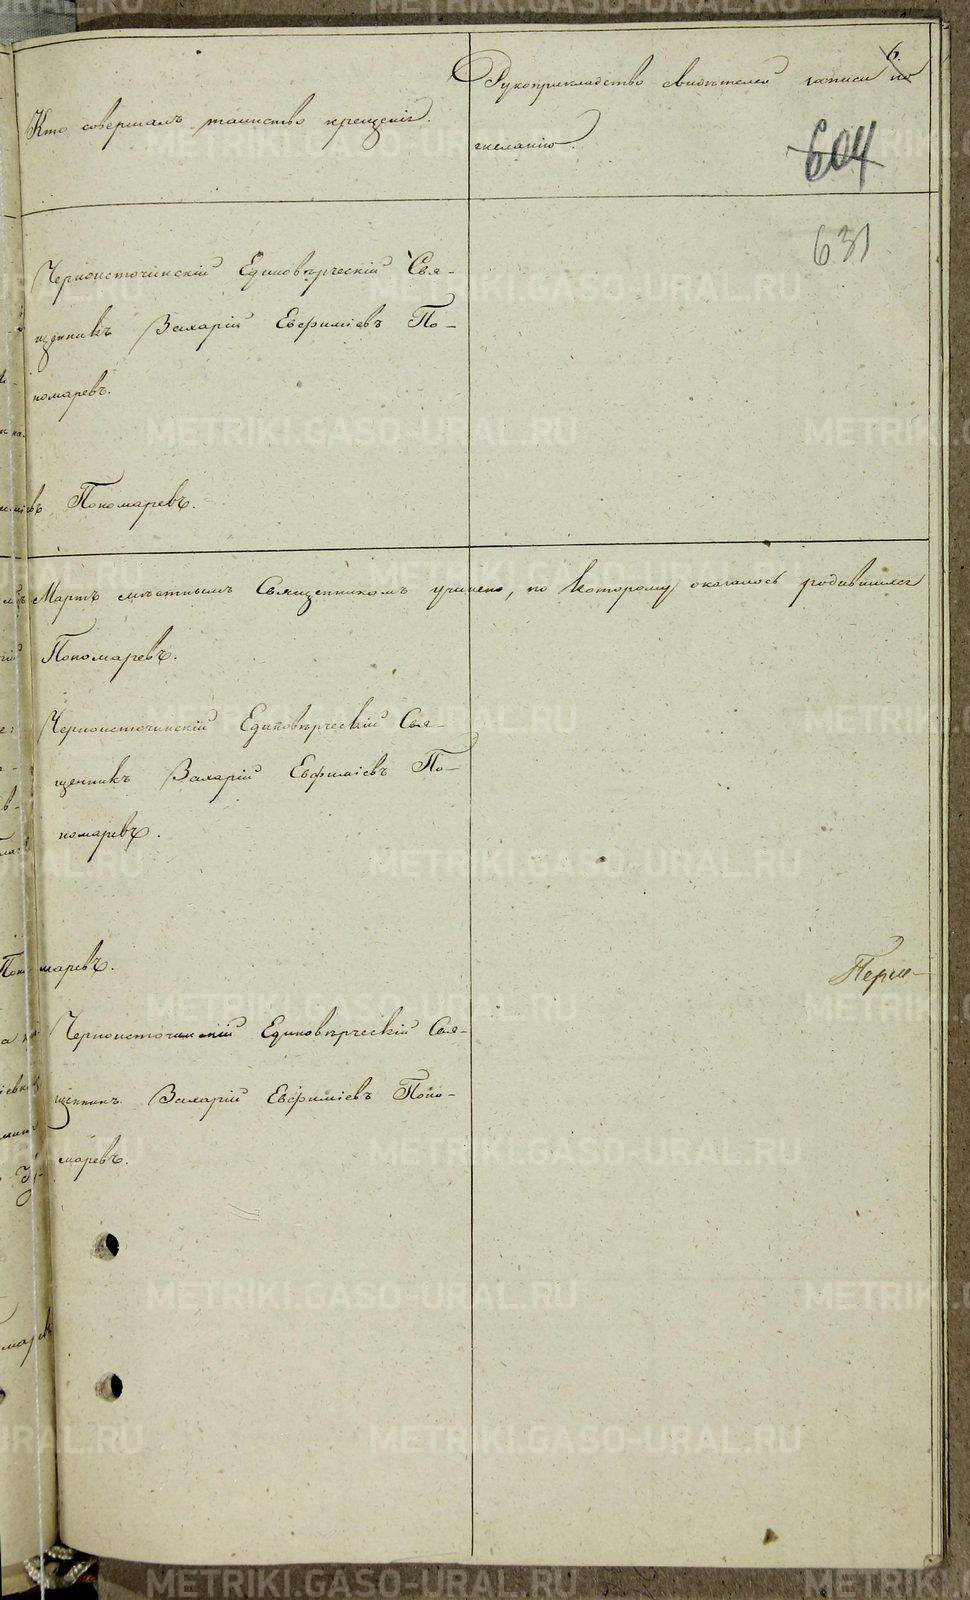 6.
Кто совершалъ таинство крещенія.
Рукоприкладство свидѣтелей записи по
желанію.
604
631
Черноисточинскій Единовѣрческій Свя-
щенникъ Захарій Евфиміевъ По-
номаревъ.
Пономаревъ.
Мартъ мѣстнымъ Священникомъ учинено, по которому оказалось родившихся
Пономаревъ.
Черноисточинскій Единовѣрческій Свя-
щенникъ Захарій Евфиміевъ По-
номаревъ.
Пономаревъ.
Перм-
Черноисточинскій Единовѣрческій Свя-
щенникъ Захарій Евфиміевъ Поно-
маревъ.
METRIKI.GASO-URAL.RU